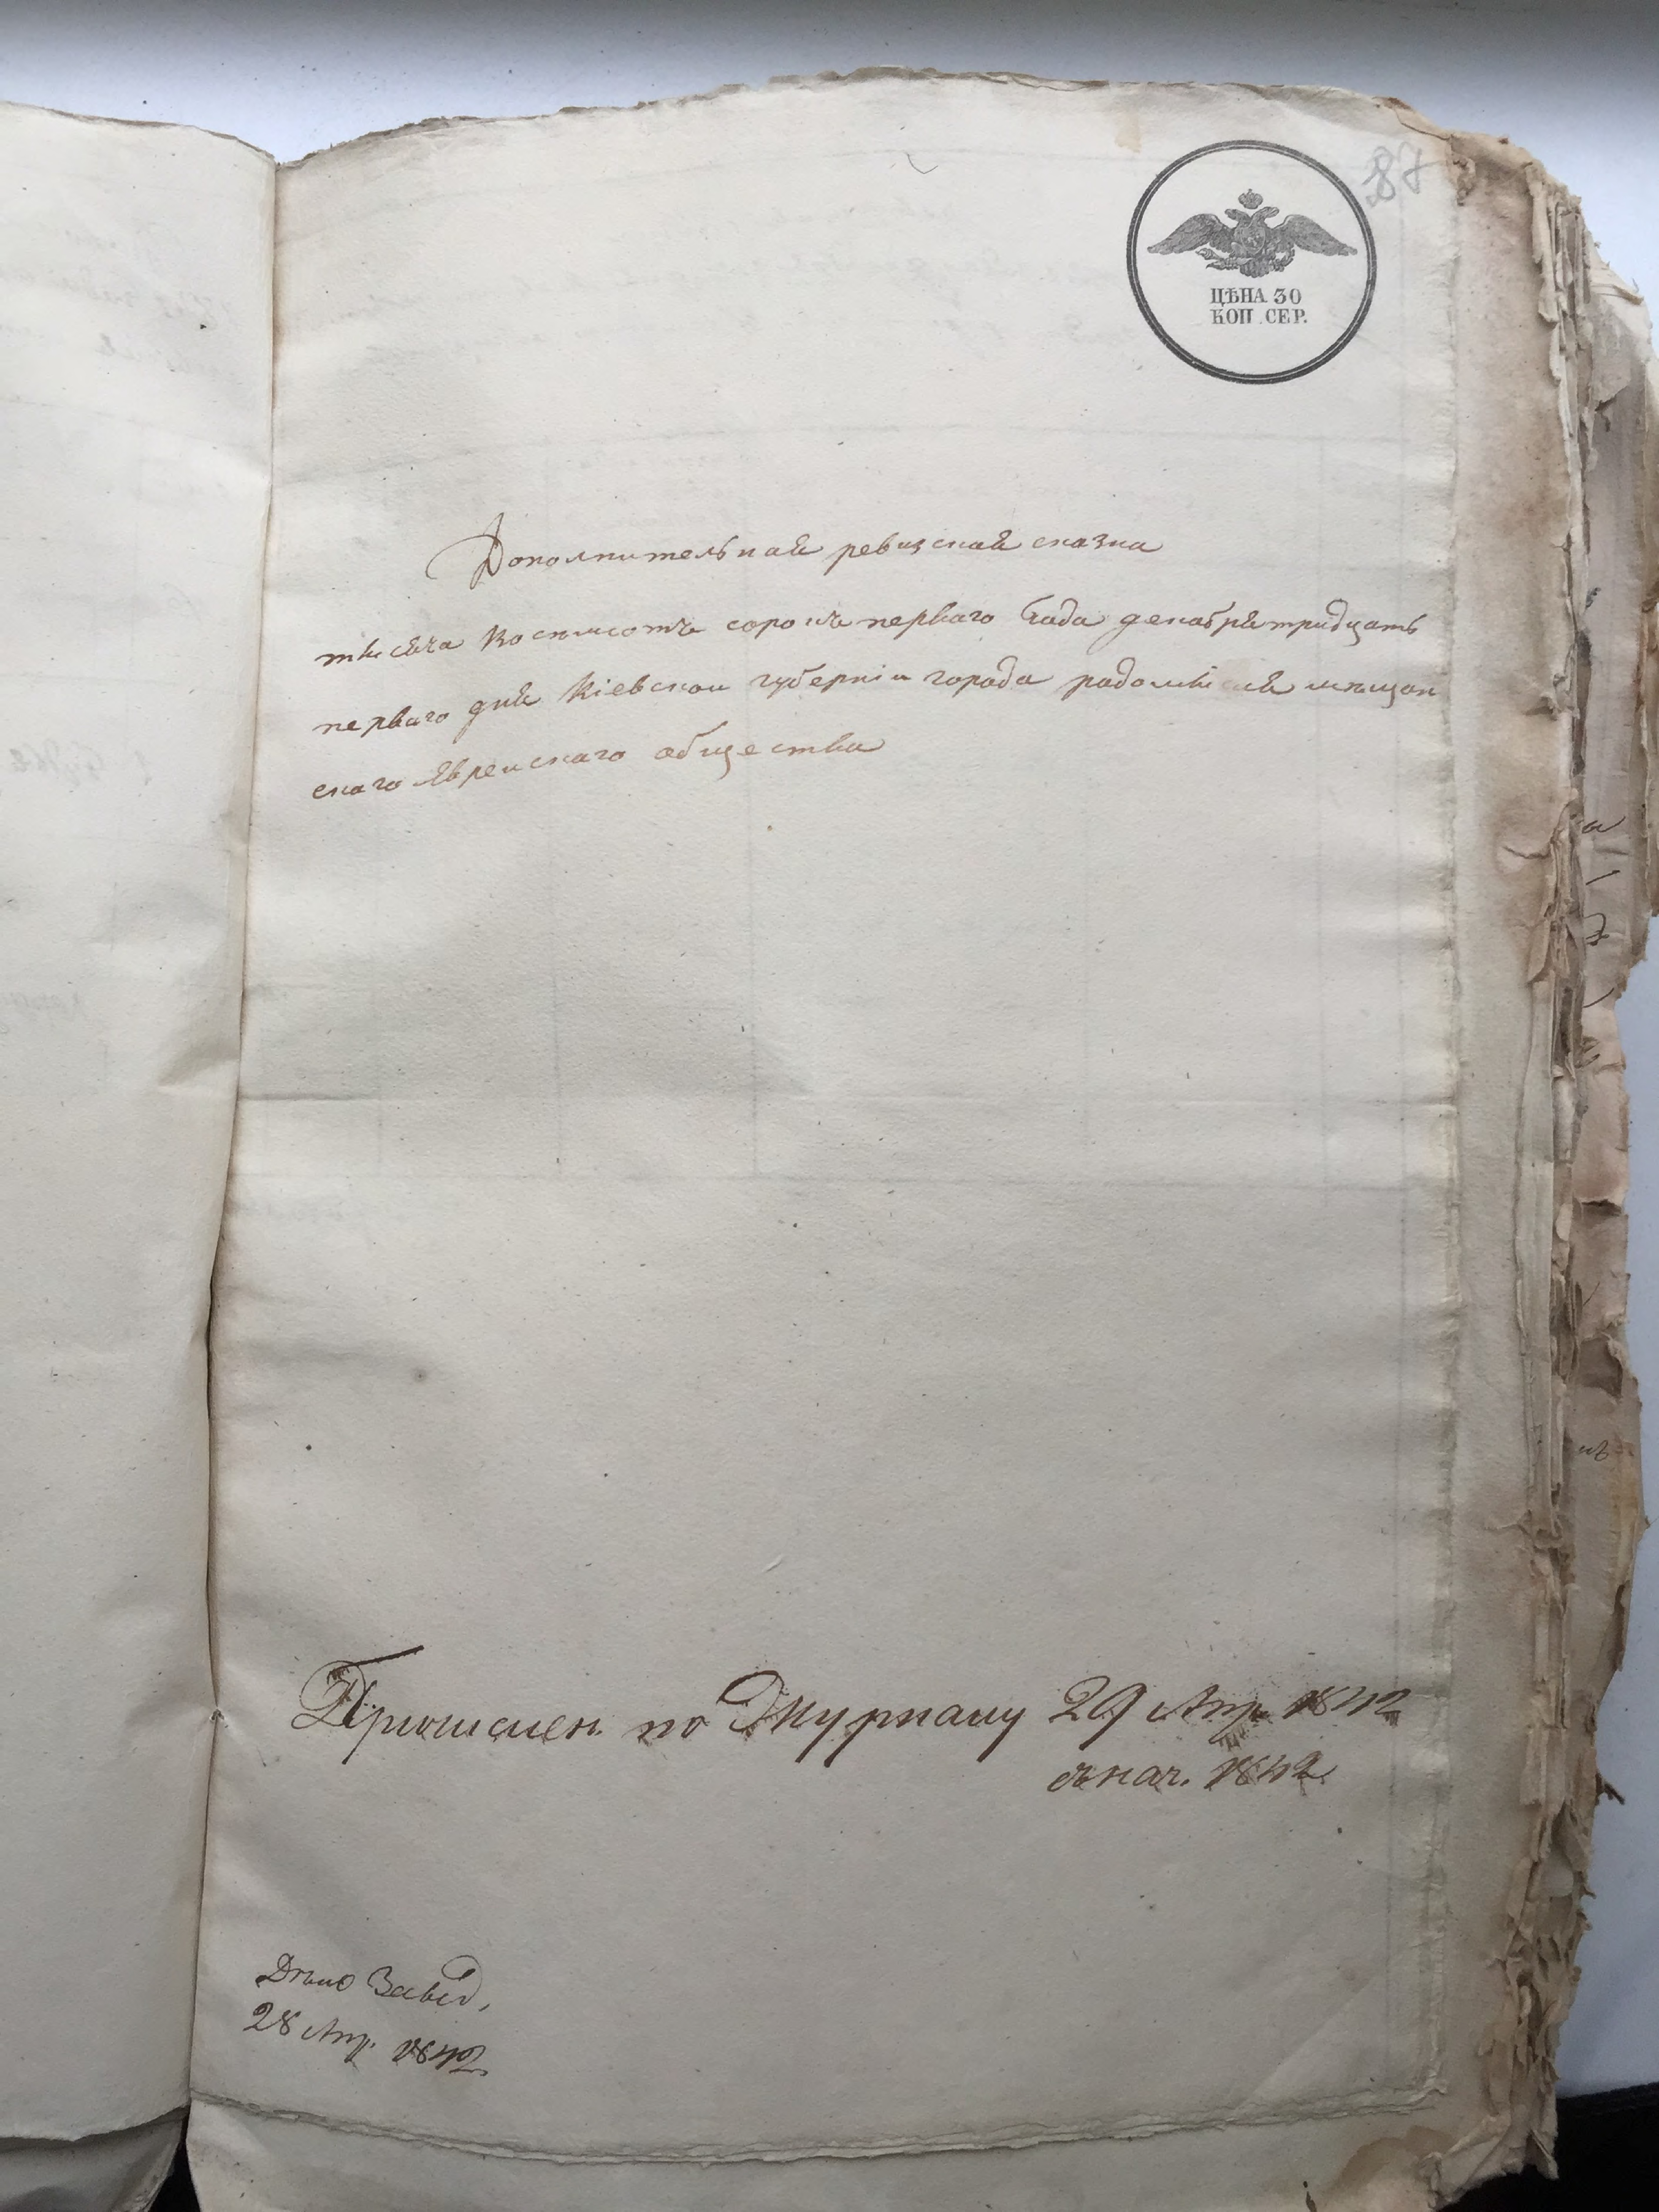 87
ЦѢНА 30
КОП. СЕР.
Дополнительная ревизская сказка
тысяча восемьсотъ сорокъ перваго Года декабря тридцать
перваго дня Кіевскои губерніи города радомысля мещан
скаго Евреискаго общества
по Журналу 29 Апр. 1842
1842
28 Апр. 1842